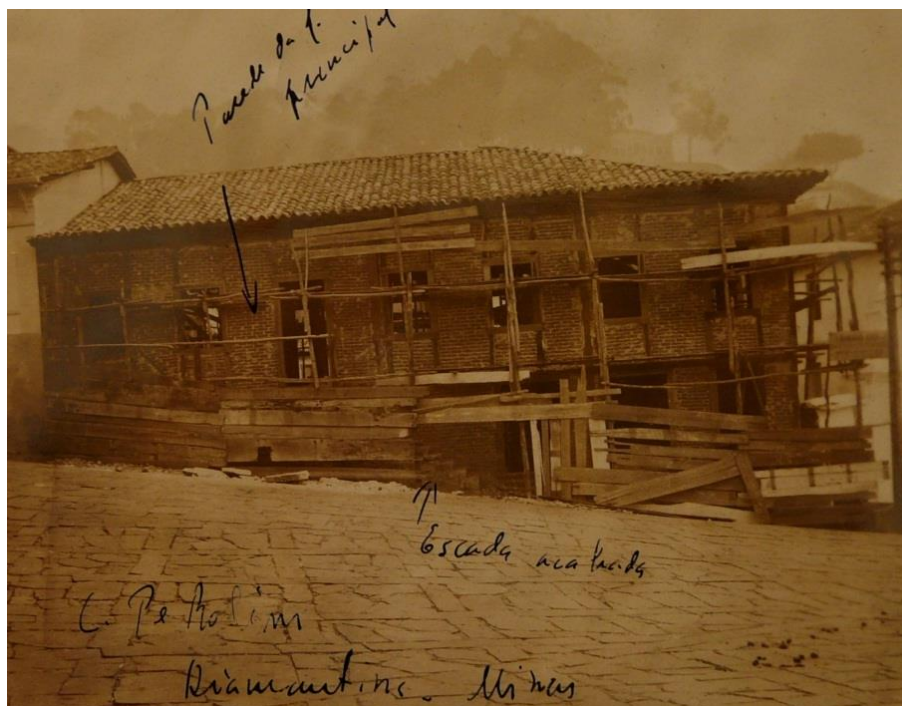 Parede da f.
principal
Escada acabada
C. Pe Rolim
Diamantina. Minas